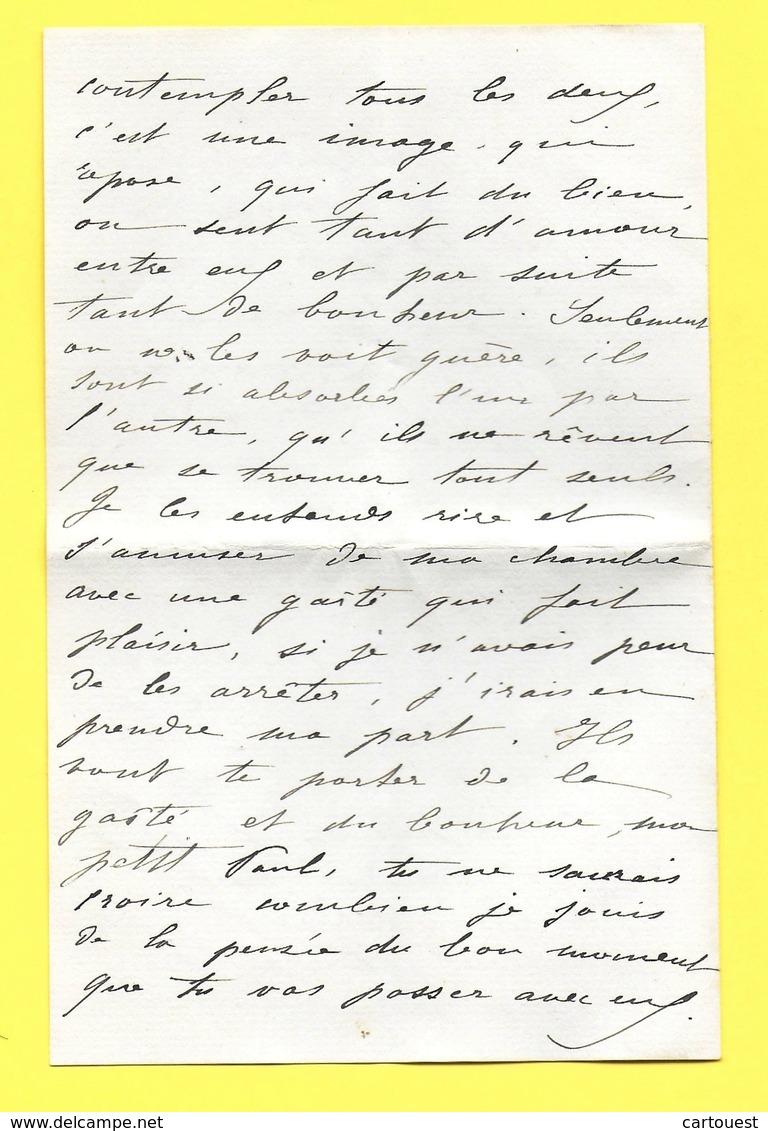 contempler tous les deux,
c'est une image qui
repose, qui fait du bien,
on sent tant d'amour
entre eux et par suite
tant de bonheur. Seulement
on ne les voit guère, ils
sont si absorbés l'un par
l'autre, qu'ils ne rêvent
que se trouver tout seuls.
Je les entends rire et
s'amuser de ma chambre
avec une gaîté qui fait
plaisir, si je n'avais peur
de les arrêter, j'irais en
prendre ma part. Ils
vont te porter de la
gaîté et du bonheur, mon
petit Paul, tu ne saurais
croire combien je jouis
de la pensée du bon moment
que tu vas passer avec eux.
www.delcampe.net
cartouest